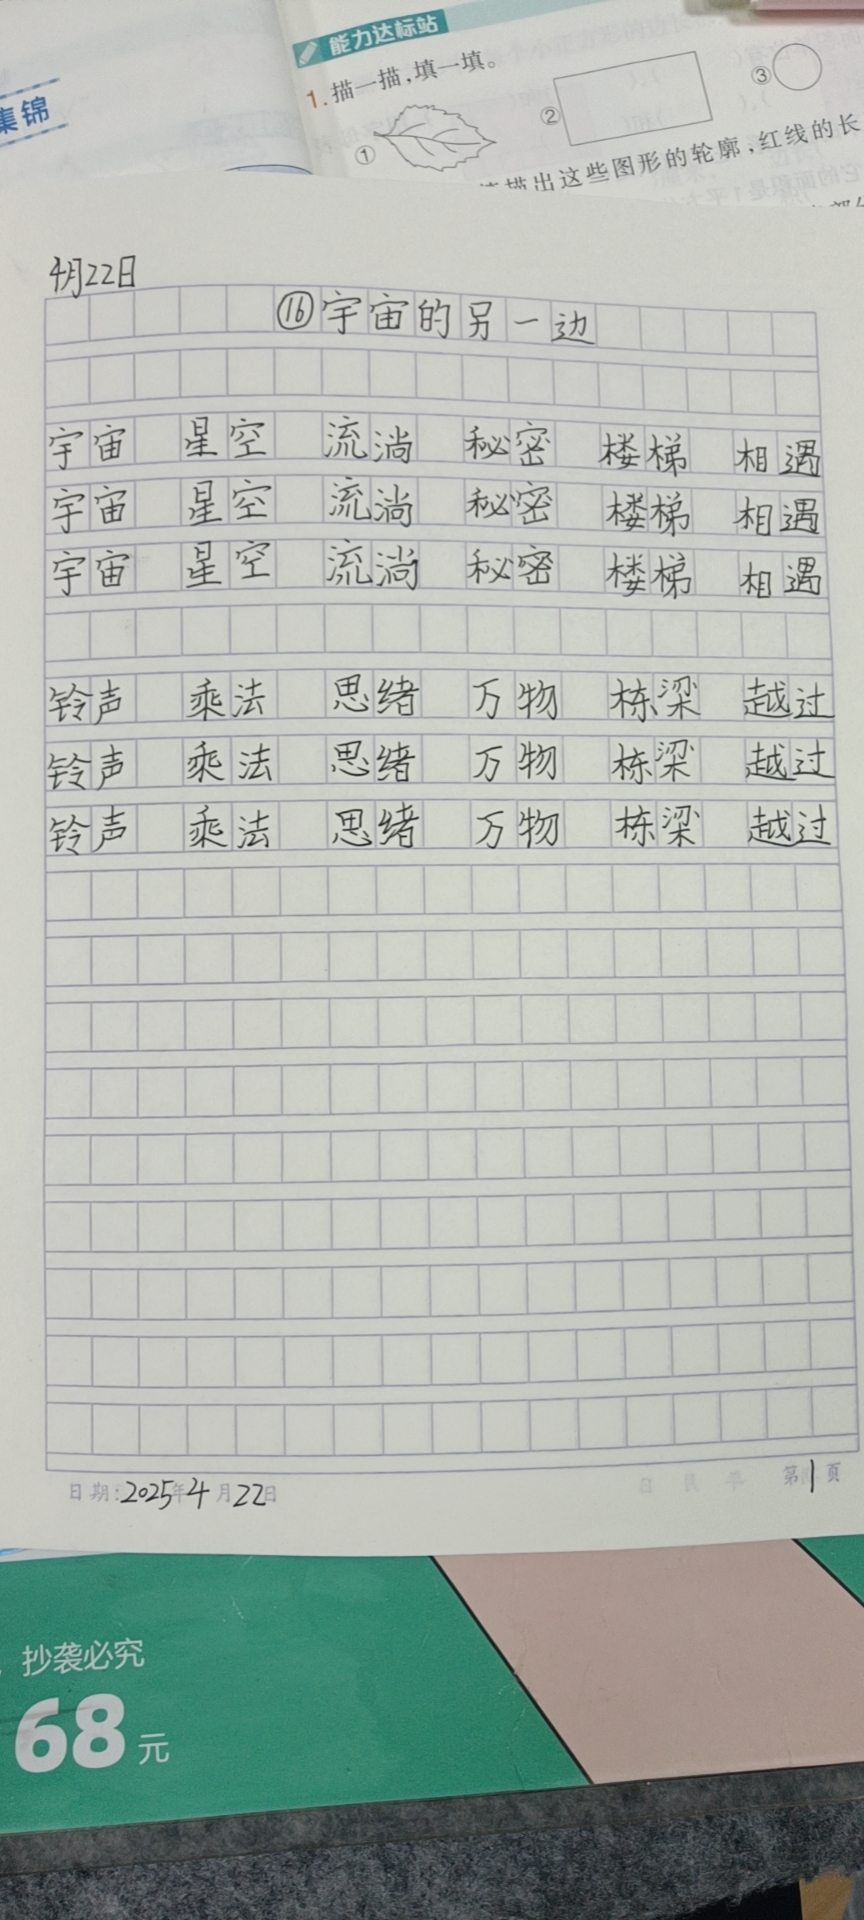 集锦
能力达标站
1.描一描,填一填。
① ② ③
描出这些图形的轮廓,红线的长
4月22日
⑯宇宙的另一边
宇宙 星空 流淌 秘密 楼梯 相遇
宇宙 星空 流淌 秘密 楼梯 相遇
宇宙 星空 流淌 秘密 楼梯 相遇
铃声 乘法 思绪 万物 栋梁 越过
铃声 乘法 思绪 万物 栋梁 越过
铃声 乘法 思绪 万物 栋梁 越过
日期:2025年4月22日
第1页
,抄袭必究
68元